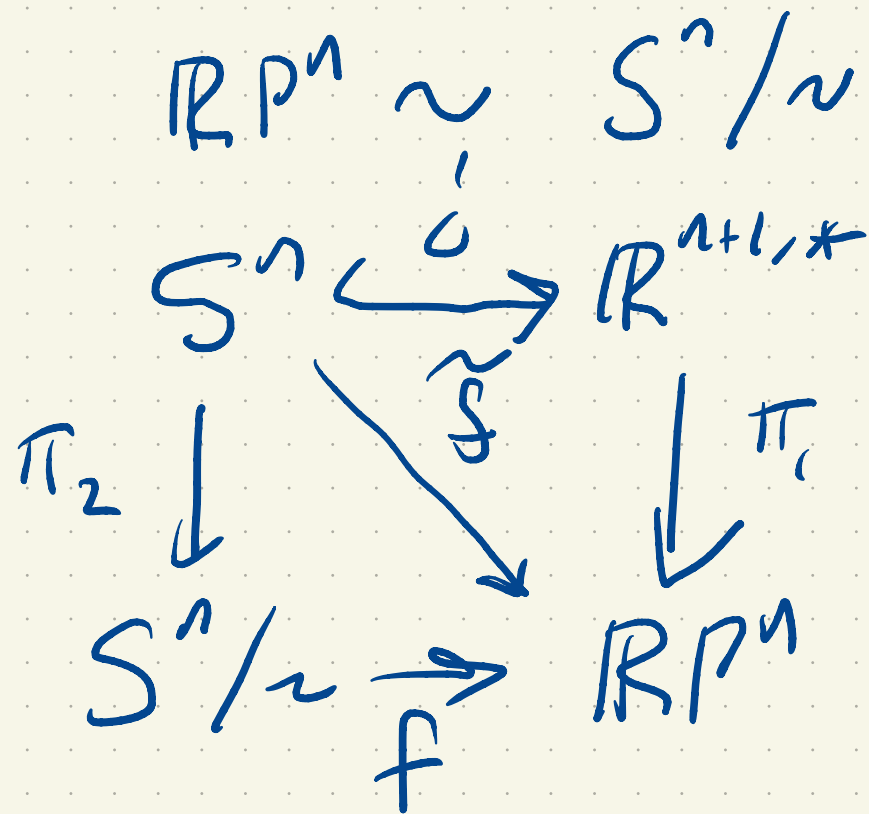 ℝPⁿ ~ Sⁿ/~
i
Sⁿ ↪ ℝⁿ⁺¹,*
f̃
π₂ ↓ ↘ ↓ π₁
Sⁿ/~ → ℝPⁿ
f